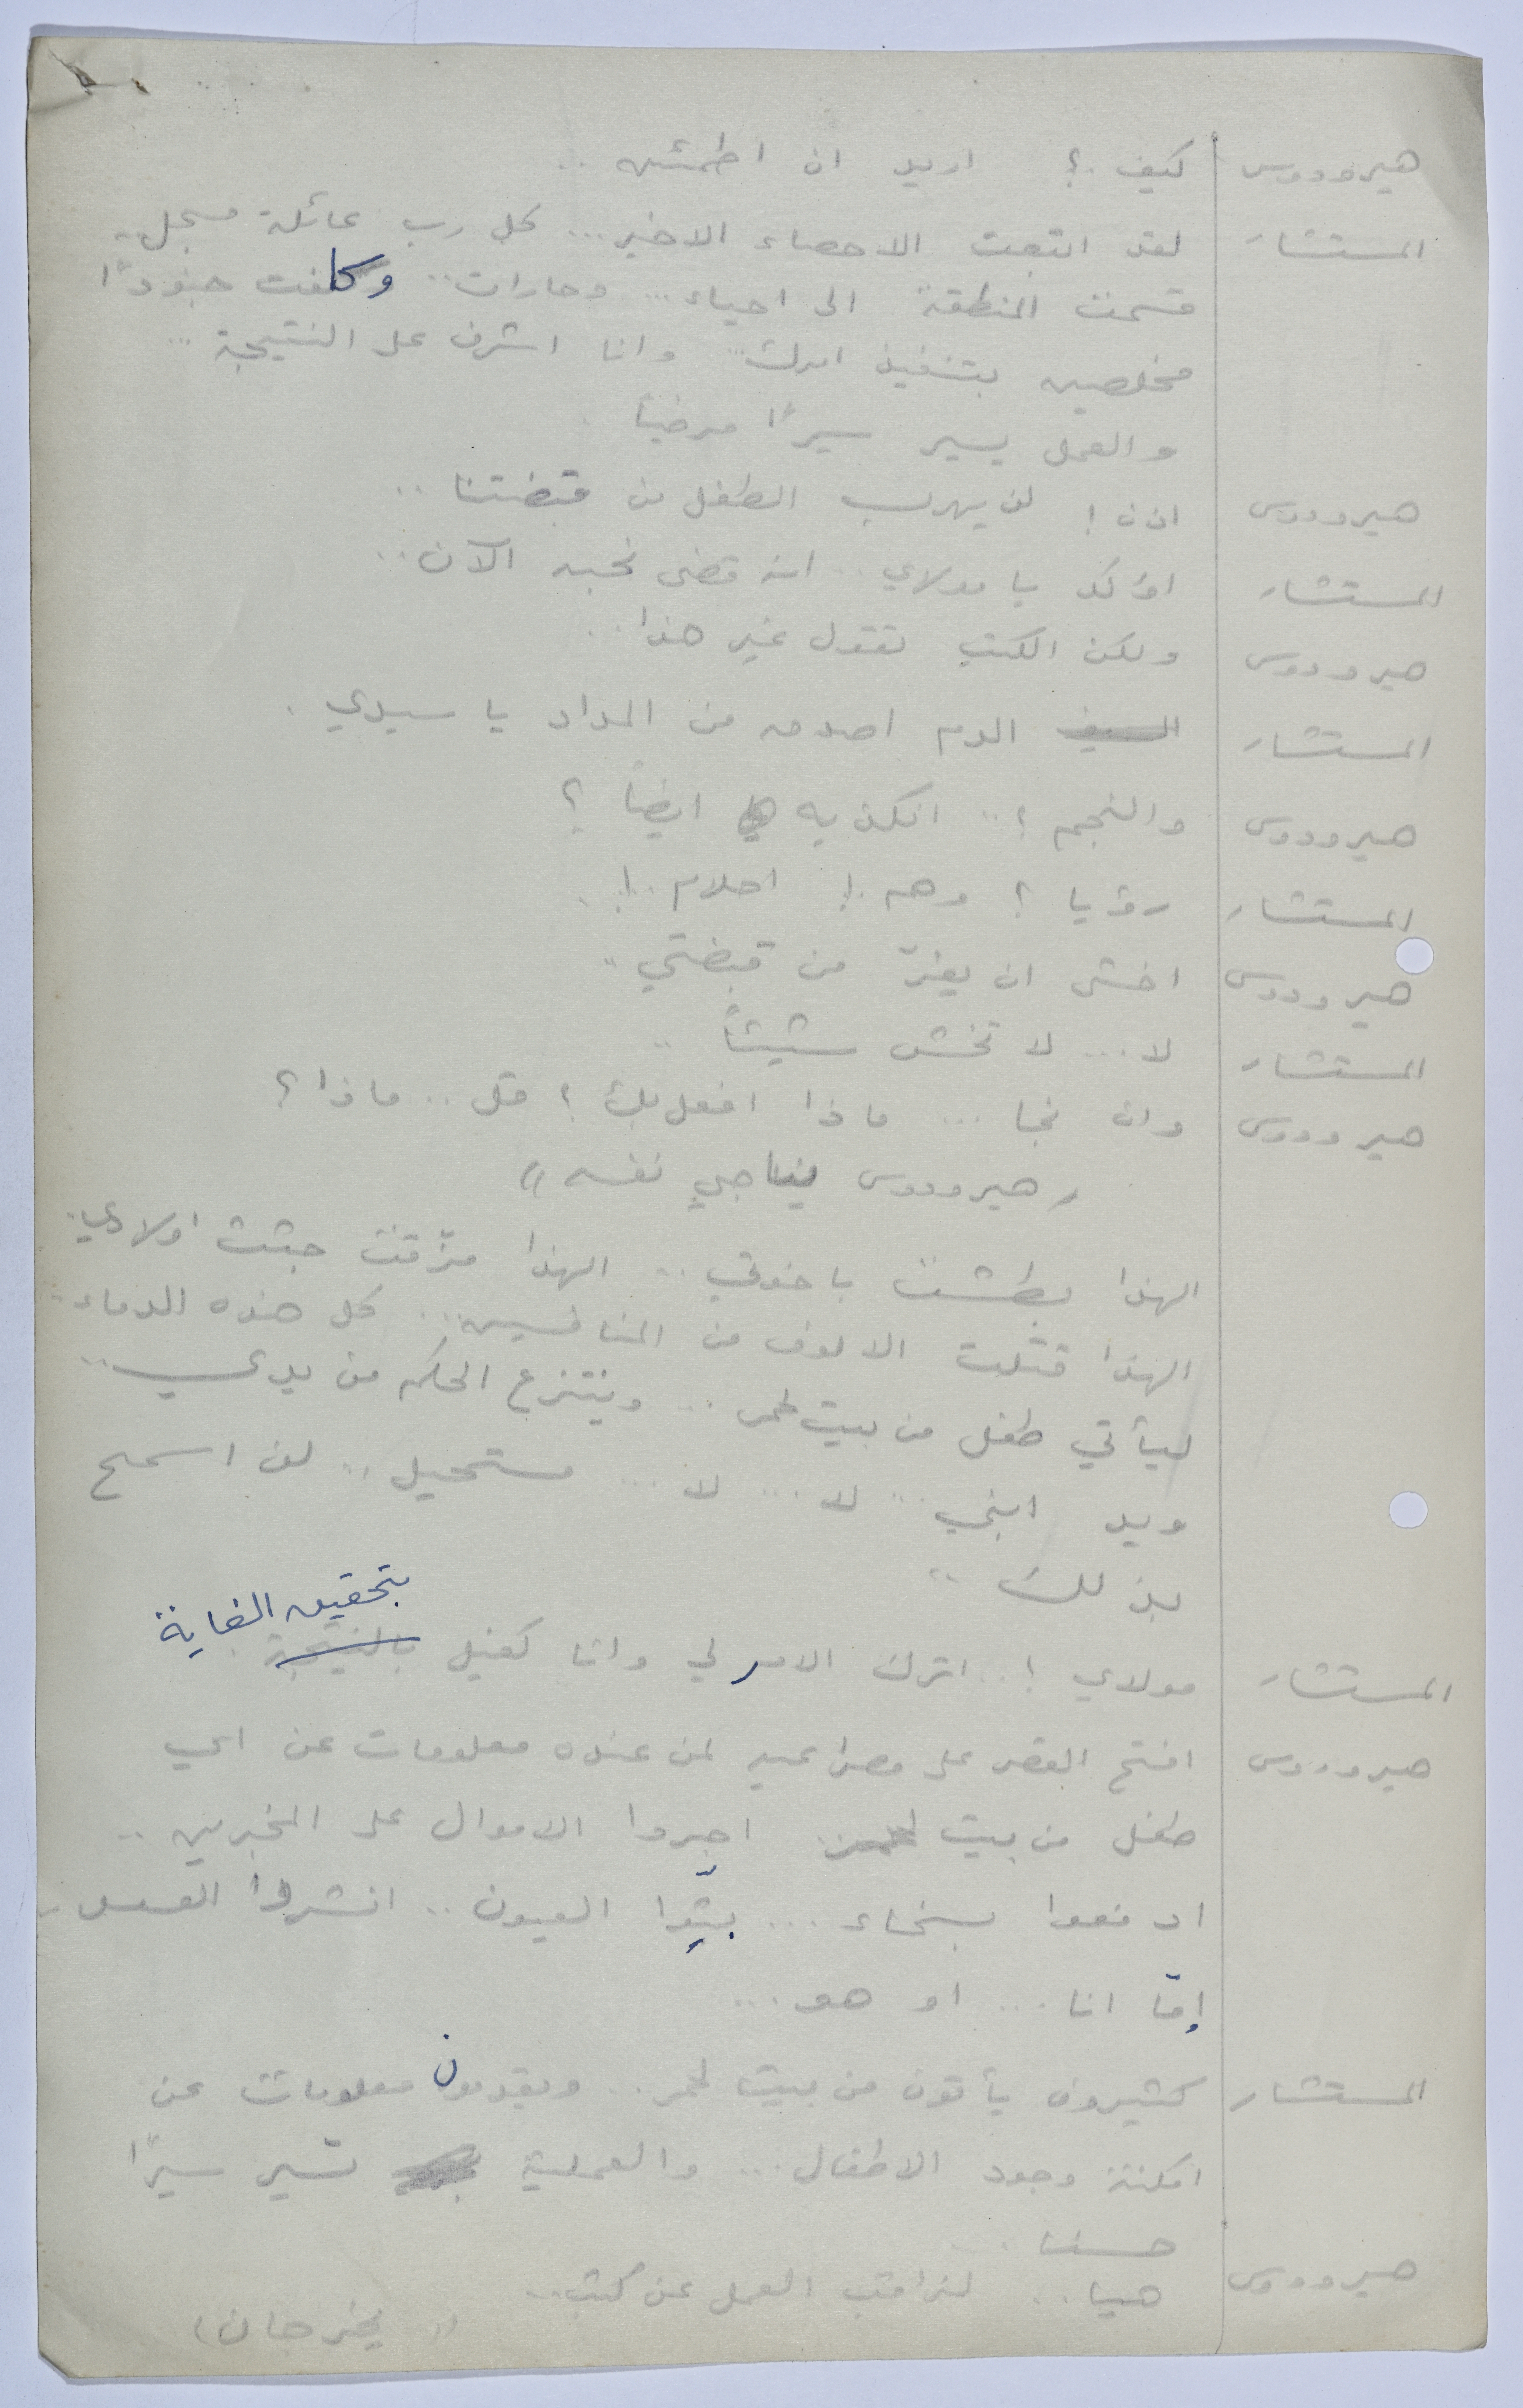 هيرودوس كيف.؟ اريد ان اطمئن ..
المستشار لقد اتبعت الاحصاء الاخير... كل رب عائلة مسجل..
قسمت المنطقة الى احياء... وحارات.. وكلفت جنوداً
مخلصين بتنفيذ امرك... وانا اشرف على النتيجة ...
والعمل يسير سيراً مرضياً .
هيرودوس اذن ! لن يهرب الطفل من قبضتنا ..
المستشار اؤكد يا مولاي .. انه قضى نحبه الآن ..
هيرودوس ولكن الكتب تقول غير هذا ..
المستشار السيف الدم اصدق من المداد يا سيدي .
هيرودوس والنجم ؟ .. اتكذبه ايضاً ؟
المستشار رؤيا ؟ وهم .! احلام .! .
هيرودوس اخشى ان يفرّ من قبضتي ..
المستشار لا ... لا تخش شيئاً ..
هيرودوس وان نجا ... ماذا افعل بك ؟ قل .. ماذا ؟
( هيرودوس يناجي نفسه )
الهذا بطشت باخوتي .. الهذا مزّقت جثث اولادي ..
الهذا قتلت الالوف من المنافسين ... كل هذه الدماء ..
ليأتي طفل من بيت لحم ... وينتزع الحكم من يدي ..
ويد ابني ... لا ... لا ... مستحيل .. لن اسمح
بذلك ..
بتحقيق الغاية
المستشار مولاي ! .. اترك الامر لي وانا كفيل بالنتيجة
هيرودوس افتح القصر على مصراعيه لمن عنده معلومات عن اي
طفل من بيت لحم. اجروا الاموال على المخبرين ..
ادفعوا بسخاء ... بثّوا العيون .. انشروا العسس ..
إمّا انا ... او هو ...
المستشار كثيرون يأتون من بيت لحم .. ويقدمون معلومات عن
امكنة وجود الاطفال ... والعملية تسير سيراً
حسنا ..
هيرودوس هيا .. لنراقب العمل عن كثب ..
( يخرجان )